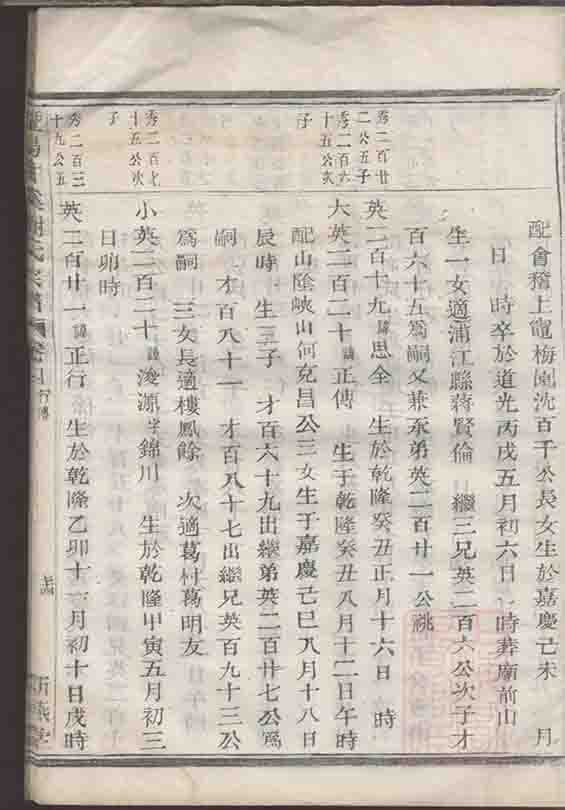 配會稽上竈梅園沈百千公長女生於嘉慶己未 月
日 時卒於道光丙戌五月初六日 時葬廟前山
生一女適浦江縣蔣賢倫 繼三兄英二百六公次子才
百六十五爲嗣又兼承弟英二百廿一公祧
秀二百廿
二公五子
英二百十九諱思全 生於乾隆癸丑正月十六日 時
秀二百六
十五公次
子
大英二百二十諱正傳 生于乾隆癸丑八月十二日午時
配山陰峽山何克昌公三女生于嘉慶己巳八月十八日
辰時 生三子 才百六十九出繼弟英二百廿七公爲
嗣 才百八十一 才百八十七出繼兄英百九十三公
爲嗣 三女長適樓鳳餘 次適葛村葛明友
秀二百七
十五公次
子
小英二百二十諱浚源字錦川 生於乾隆甲寅五月初三
日卯時
秀二百三
十九公五
英二百廿一諱正行 生於乾隆乙卯十 月初十日戌時
謝氏宗譜
行傳